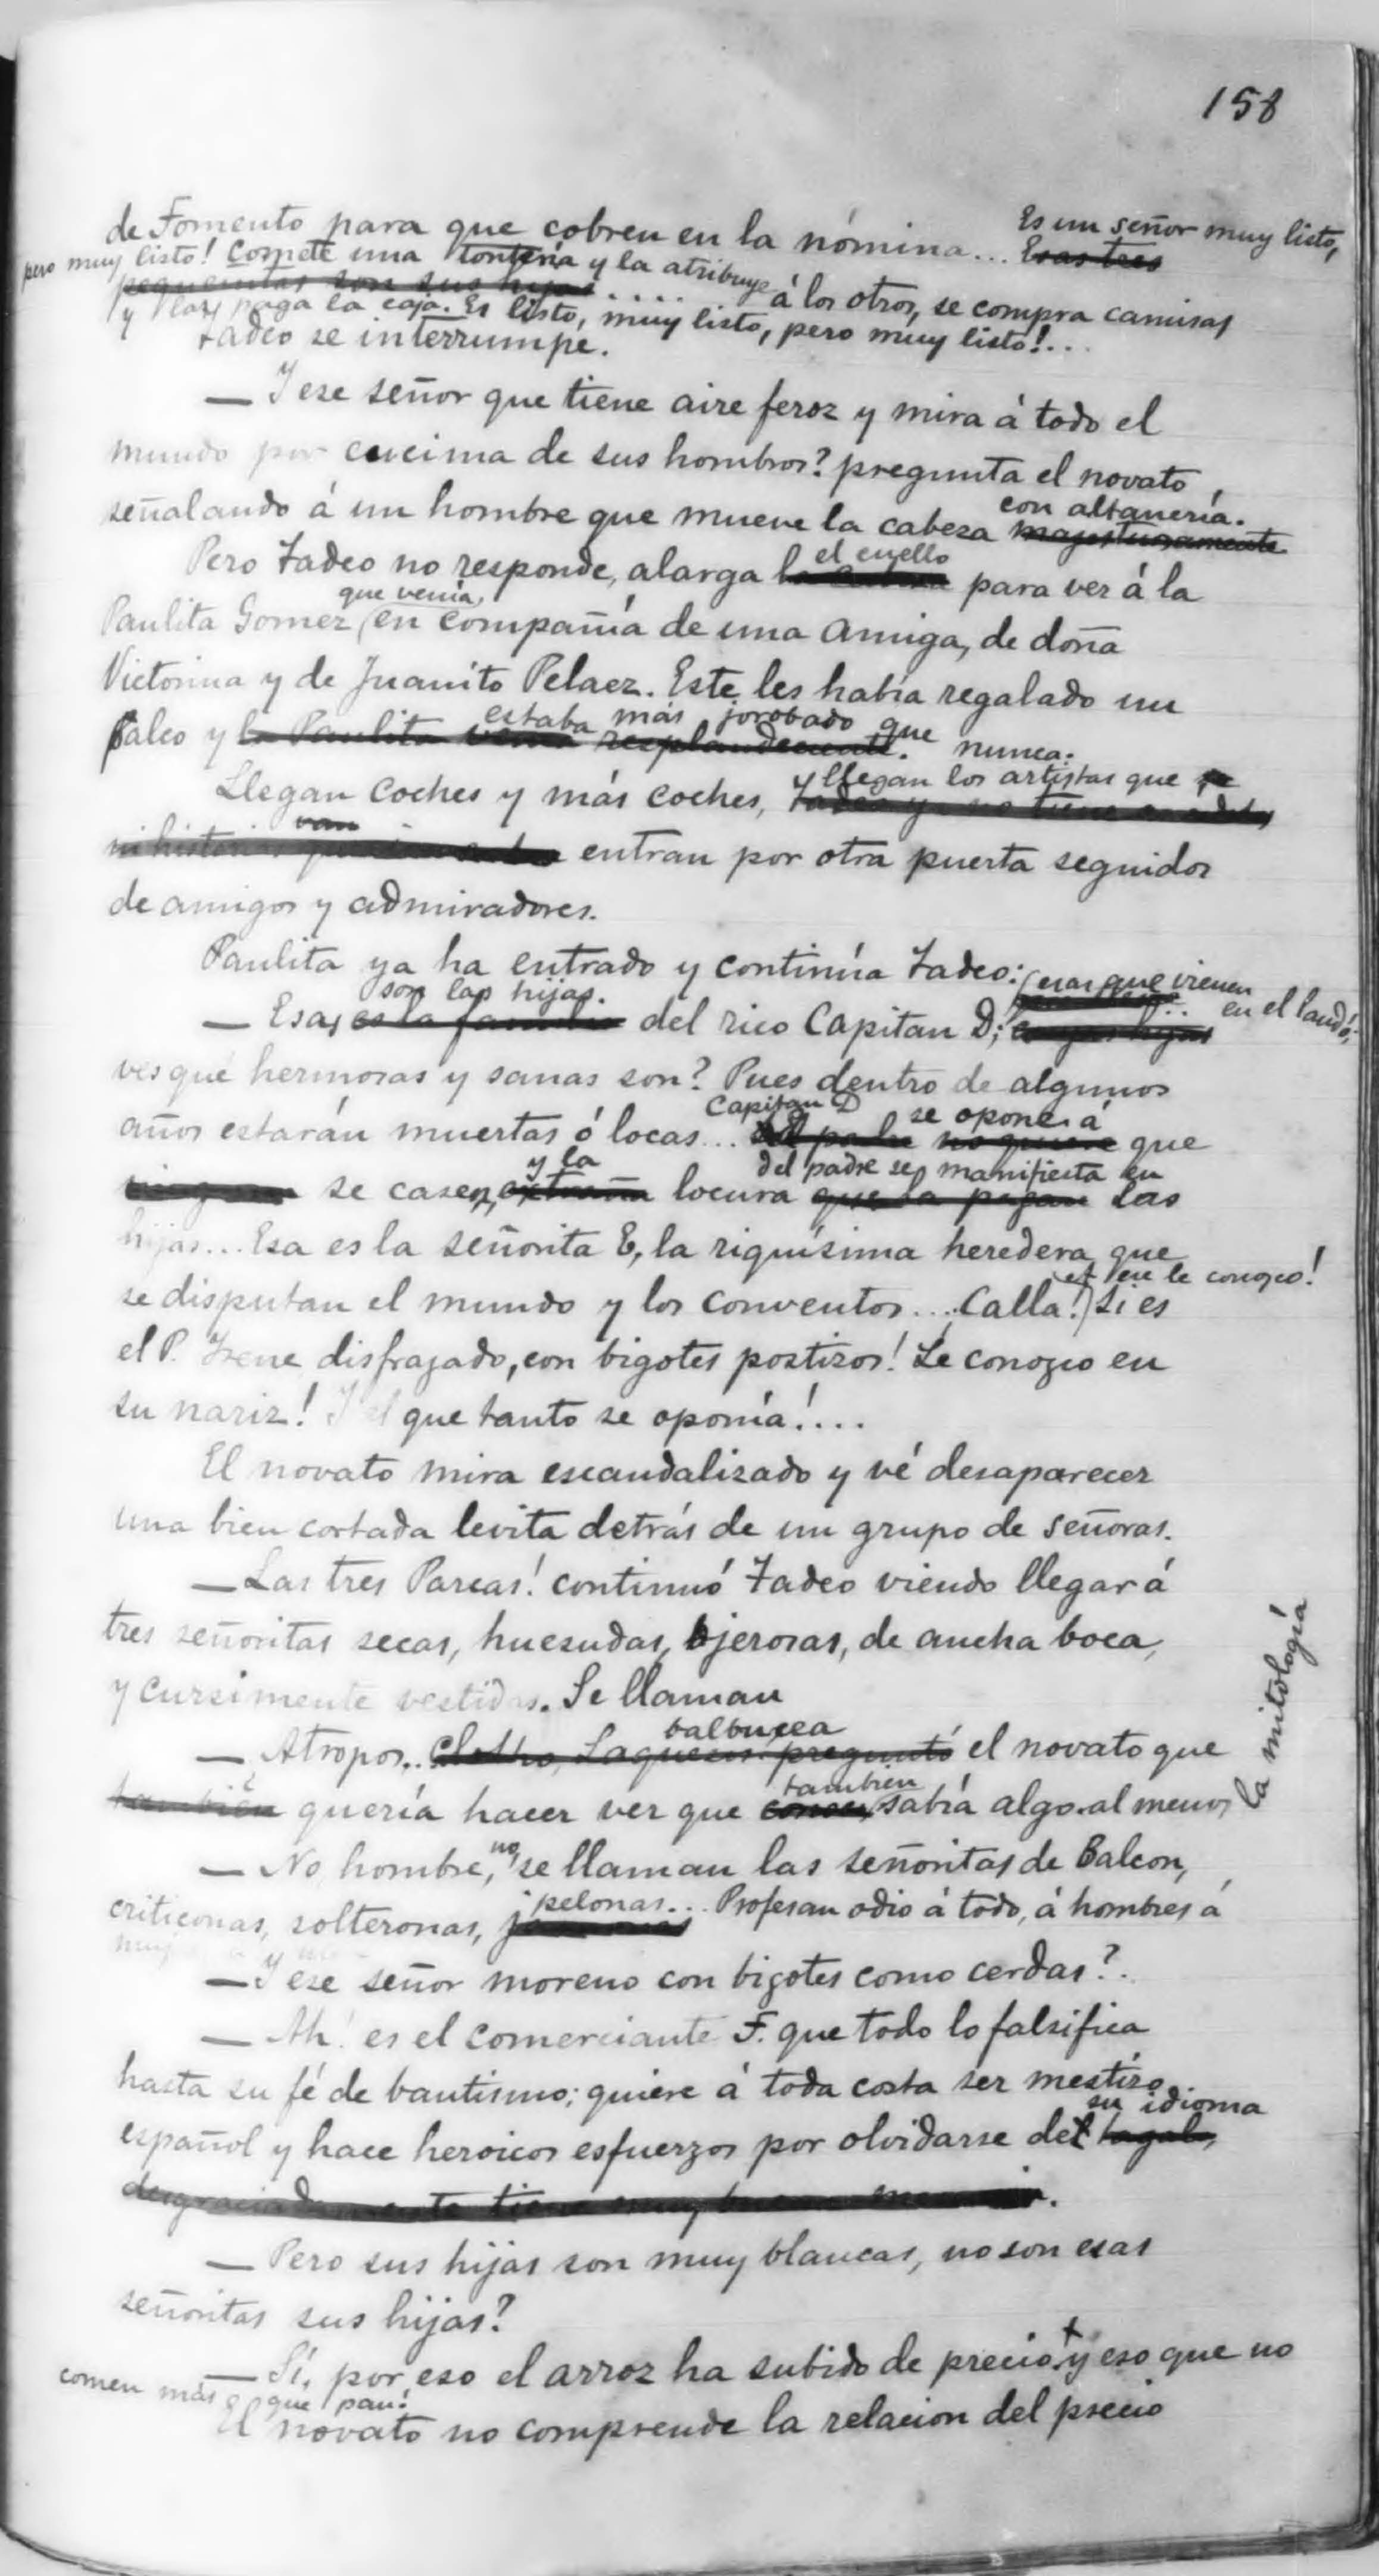 158
de Fomento para que cobren en la nómina... Es un señor muy listo,
Esas tres
pero muy listo! Comete una tontería y la atribuye á los otros, se compra camisas
pequeñitas son sus hijas.....
y las paga la caja. Es listo, muy listo, pero muy listo!...
Tadeo se interrumpe.
— Y ese señor que tiene aire feroz y mira á todo el
mundo por encima de sus hombros? pregunta el novato,
señalando á un hombre que mueve la cabeza con altanería.
majestuosamente
Pero Tadeo no responde, alarga el cuello para ver á la
que venia
Paulita Gomez, en compañía de una amiga, de doña
Victorina y de Juanito Pelaez. Este les había regalado un
palco y estaba más jorobado que nunca.
la Paulita venia resplandeciente.
Llegan coches y más coches, llegan los artistas que
van
entran por otra puerta seguidos
de amigos y admiradores.
Paulita ya ha entrado y continúa Tadeo:
son las hijas. esas que vienen en el landó,
— Esas es la familia del rico Capitan D;
ves qué hermosas y sanas son? Pues dentro de algunos
Capitan D se opone á
años estarán muertas ó locas... el padre no quiere que
y la del padre se manifiesta en
se casen, extraña locura que la pagan las
hijas... Esa es la señorita E, la riquísima heredera que
ese le conozco!
se disputan el mundo y los conventos... Calla! Si es
el P. Irene disfrazado, con bigotes postizos! Le conozco en
su nariz! Y el que tanto se oponía!...
El novato mira escandalizado y vé desaparecer
una bien cortada levita detrás de un grupo de señoras.
— Las tres Parcas! continuó Tadeo viendo llegar á
tres señoritas secas, huesudas, ojerosas, de ancha boca,
y cursimente vestidas. Se llaman
balbucea
— Atropos.. Clotho, Laquesis. preguntó el novato que
también
también quería hacer ver que sabía algo, al menos
la mitología
— No hombre, no, se llaman las señoritas de Balcon,
criticonas, solteronas, pelonas... Profesan odio á todo, á hombres á
— Y ese señor moreno con bigotes como cerdas?.
— Ah! es el comerciante F. que todo lo falsifica
hasta su fé de bautismo; quiere á toda costa ser mestizo
su idioma
español y hace heroicos esfuerzos por olvidarse del tagalo,
desgraciadamente tiene muy buena memoria.
— Pero sus hijas son muy blancas, no son esas
señoritas sus hijas?
— Sí, por eso el arroz ha subido de precio y eso que no
comen más que pan!
El novato no comprende la relacion del precio